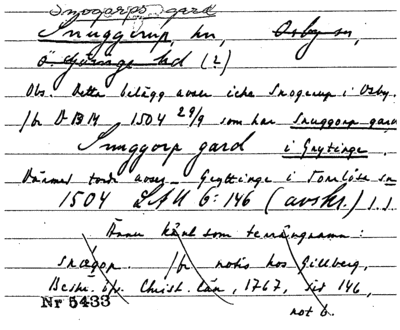 Snogorps gard
Snuggerup, hu, Osby sn,
ö Göinge hd (?)
Obs. Detta belägg avser icke Snogerup i Osby.
jfr D 1314 1504 29/9 som har Snuggorp gard
Snuggorp gard i Gnytinge.
Därmed torde avses Gryttinge i Torrlösa sn
1504 LAU 6:146 (avskr.) J.J.
Ännu känt som terrängnamn:
Snogorp. jfr notis hos Gillberg,
Beskr. öfv. Christ. län, 1767, sid 146,
Nr 5433 not 6.